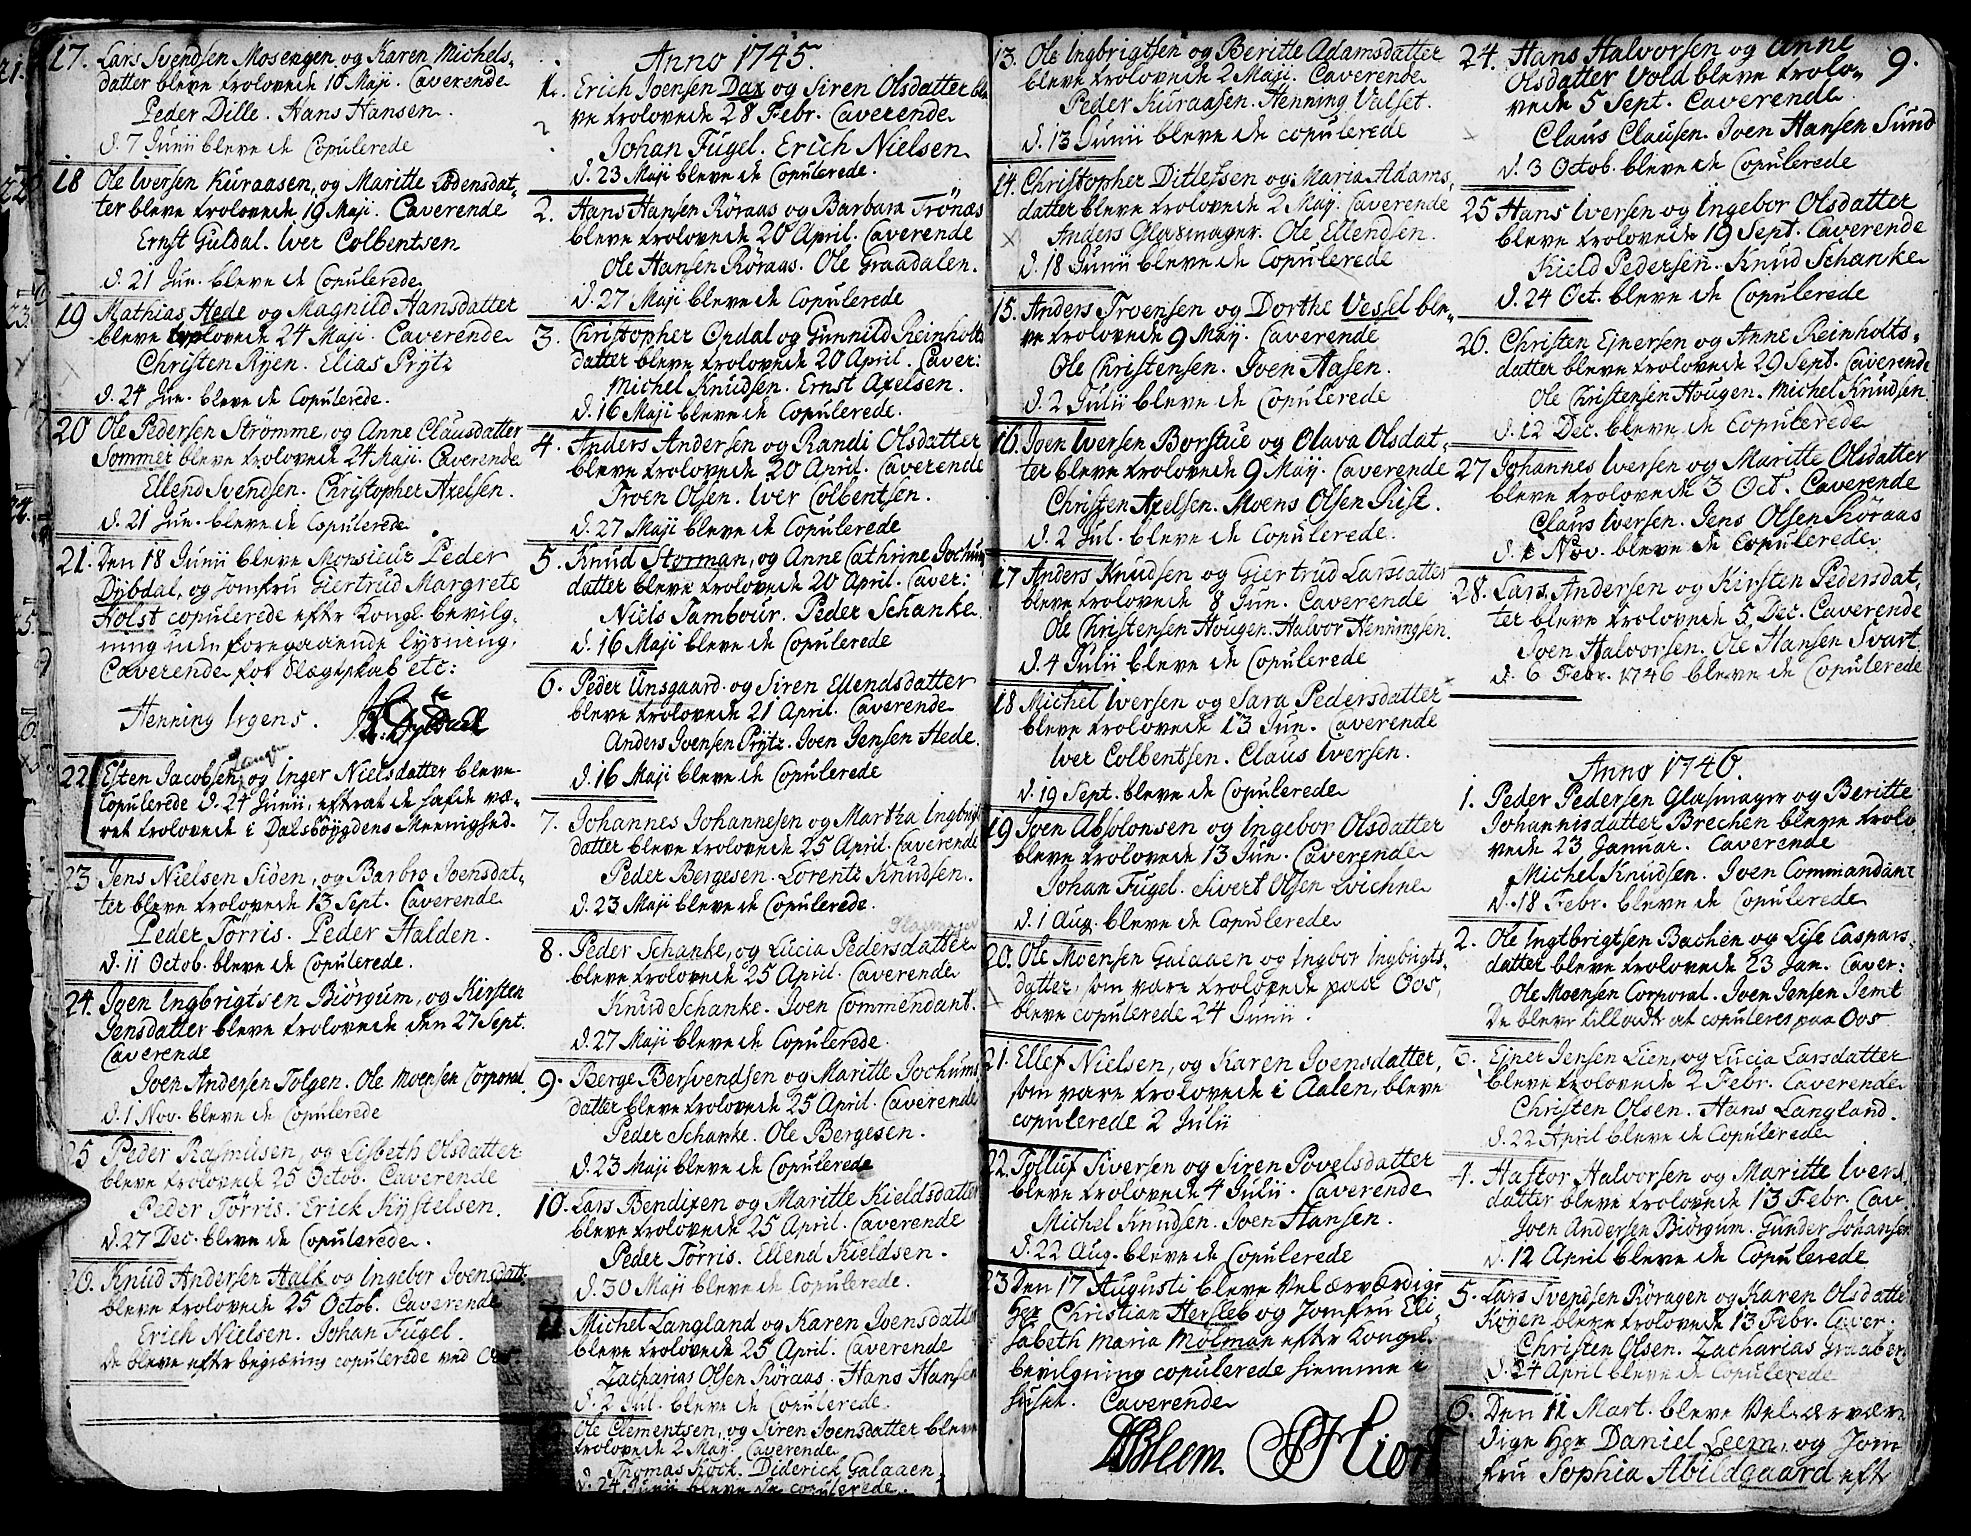 17. Lars Svendsen Mosengen og Karen Michels-
datter bleve trolovede 16 Maji. Caverende
Peder Dille. Hans Hansen.
d. 7 Junii bleve de Copulerede
18 Ole Iversen Kuraasen, og Maritte Lodensdat-
ter bleve trolovede 19 Maji. Caverende
Ernst Guldal. Iver Colbentsen
d. 21 Jun. bleve de Copulerede
19 Mathias Hede og Magnild Hansdatter
bleve trolovede 24 Maji. Caverende
Christen Ryen. Elias Prytz
d. 24 Jun. bleve de Copulerede.
20 Ole Pedersen Strømme, og Anne Clausdatter
Sommer bleve trolovede 24 Maji. Caverende
Ellend Svendsen. Christopher Axelsen.
d. 21 Jun. bleve de Copulerede
21. Den 18 Junii bleve Monsieur Peder
Dybdal, og Jomfru Giertrud Margrete
Holst copulerede efter Kongl. bevilg-
ning uden foregaaende lysning.
Caverende for Slægtskab etc:
Henning Irgens.
22 Esten Jacobsen og Inger Nielsdatter bleve
Copulerede d. 24 Junii, efterat de hafde væ-
ret trolovede i Dalsbøygdens Meenighed.
23 Jens Nielsen Siøen, og Barbro Joensdat-
ter bleve trolovede 13 Sept. Caverende
Peder Tørris. Peder Halden.
d. 11 Octob. bleve de Copulerede.
24. Joen Ingbrigtsen Biørgum, og Kirsten
Jensdatter bleve trolovede den 27 Sept.
Caverende
Joen Andersen Tolgen. Ole Moensen Corporal
d. 1 Nov. bleve de Copulerede
25 Peder Rasmusen, og Lisbeth Olsdatter
bleve trolovede 25 Octob. Caverende
Peder Tørris. Erick Kystelsen.
d. 27 Dec. bleve de Copulerede.
26. Knud Andersen Halk og Ingebor Joensdat:
bleve trolovede 25 Octob. Caverende
Erich Nielsen. Johan Fugel.
de bleve efter begiæring copulerede ved Oos.
Anno 1745.
1. Erich Joensen Dax og Siren Olsdatter ble
ve trolovede 28 Febr. Caverende
Johan Fugel. Erich Nielsen
d. 23 Maji bleve de Copulerede.
2. Hans Hansen Røraas og Barbara Trønæs
bleve trolovede 20 April. Caverende
Ole Hansen Røraas. Ole Graadalen.
d. 27 Maji bleve de Copulerede
3. Christopher Opdal og Gunnild Reinholts
datter bleve trolovede 20 April. Caver:
Michel Knudsen. Ernst Axelsen.
d. 16 Maji bleve de Copulerede.
4. Anders Andersen og Randi Olsdatter
bleve trolovede 20 April. Caverende
Troen Olsen. Iver Colbentsen.
d. 27 Maji bleve de Copulerede
5. Knud Storman, og Anne Cathrine Jochum
datter bleve trolovede 20 April. Caver:
Niels Tambour. Peder Schanke.
d. 16 Maji bleve de Copulerede
6. Peder Unsgaard og Siren Ellendsdatter
bleve trolovede 21 April. Caverende
Anders Joensen Prytz. Joen Jensen Hede.
d. 16 Maji bleve de Copulerede
7. Johannes Johannesen og Martha Ingbrigt
datter bleve trolovede 25 April. Caverende
Peder Bergesen. Lorentz Knudsen.
d. 23 Maji bleve de Copulerede.
8. Peder Schanke, og Lucia Pedersdatter
bleve trolovede 25 April. Caverende
Knud Schanke. Joen Commendant.
d. 27 Maji bleve de Copulerede.
9. Berge Bersvendsen og Maritte Jochums
datter bleve trolovede 25 April. Caverende
Peder Schanke. Ole Bergesen.
d. 23 Maji bleve de Copulerede
10. Lars Bendixen og Maritte Kieldsdatter
bleve trolovede 25 April. Caverende
Peder Tørris. Ellend Kieldsen.
d. 30 Maji bleve de Copulerede.
11 Michel Langland og Karen Joensdatter
bleve trolovede 25 April. Caverende
Zacharias Olsen Røraas. Hans Hansen
d. 2 Jul. bleve de Copulerede.
Ole Clementsen, og Siren Joensdatter bleve
trolovede 2 May. Caverende
Thomas Kock. Diderick Galaaen.
d. 24 Junii bleve de copulerede.
13. Ole Ingbrigtsen og Beritte Adamsdatter
bleve trolovede 2 Maji. Caverende
Peder Kuraasen. Henning Valset.
d. 13 Junii bleve de copulerede
14. Christopher Ditlefsen og Maria Adams-
datter bleve trolovede 2 May. Caverende
Anders Glasmager. Ole Ellendsen.
d. 18 Junii bleve de Copulerede
15. Anders Troensen og Dorthe Vesel ble-
ve trolovede 9 May. Caverende
Ole Christensen. Joen Aasen.
d. 2 Julii bleve de Copulerede
16. Joen Iversen Borstue og Olava Olsdat-
ter bleve trolovede 9 May. Caverende
Christen Axelsen. Moens Olsen Rist.
d. 2 Jul. bleve de Copulerede.
17 Anders Knudsen og Giertrud Larsdatter
bleve trolovede 8 Jun. Caverende
Ole Christensen Hougen. Halvor Henningsen.
d. 4 Julii bleve de Copulerede
18 Michel Iversen og Sara Pedersdatter
bleve trolovede 13 Jun. Caverende
Iver Colbentsen. Claus Iversen.
d. 19 Sept. bleve de Copulerede
19 Joen Absolonsen og Ingebor Olsdatter
bleve trolovede 13 Jun. Caverende
Johan Fugel. Sivert Olsen Lvichne
d. 1 Aug. bleve de Copulerede
20. Ole Moensen Galaaen og Ingbor Ingbrigts-
datter, som vare trolovede paa Oos,
bleve copulerede 24 Junii.
21. Ellef Nielsen, og Karen Joensdatter,
som vare trolovede i Aalen, bleve
copulerede 2 Julii
22. Tolluf Siversen og Siren Povelsdatter
bleve trolovede 4 Julii. Caverende
Michel Knudsen. Joen Hansen.
d. 22 Aug. bleve de Copulerede
23 Den 17 Augusti bleve Velærværdige
Her Christian Hersleb og Jomfru Eli
sabeth Maria Molman efter Kongel.
bevilgning copulerede hiemme i
huset. Caverende
9.
24. Hans Halvorsen og Anne
Olsdatter Vold bleve trolo-
vede 5 Sept. Caverende
Claus Clausen. Joen Hansen Sund
d. 3 Octob. bleve de Copulerede
25 Hans Iversen og Ingebor Olsdatter
bleve trolovede 19 Sept. Caverende
Kield Pedersen. Knud Schanke
d. 24 Oct. bleve de Copulerede
26. Christen Ejnersen og Anne Reinholts-
datter bleve trolovede 29 Sept. Caverende
Ole Christensen Hougen. Michel Knudsen
d. 12 Dec. bleve de Copulerede
27 Johannes Iversen og Maritte Olsdatter
bleve trolovede 3 Oct. Caverende
Claus Iversen. Jens Olsen Røraas
d. 1 Nov. bleve de Copulerede
28. Lars Andersen og Kirsten Pedersdat-
ter bleve trolovede 5 Dec. Caverende
Joen Halvorsen. Ole Hansen Svart
d. 6 Febr. 1746 bleve de Copulerede
Anno 1746.
1. Peder Pedersen Glasmager og Beritte
Johannisdatter Brechen bleve trolo
vede 23 Januar. Caverende
Michel Knudsen. Joen Commandant
d. 18 Febr. bleve de Copulerede
2. Ole Ingtbrigtsen Bachen og Lise Caspars-
datter bleve trolovede 23 Jan. Caver:
Ole Moensen Corporal. Joen Jensen Jemt
De bleve tilladt at copuleres paa Oos
3. Ejner Jensen Lien, og Lucia Larsdatter
bleve trolovede 2 Febr. Caverende
Christen Olsen. Hans Langland.
d. 22 April bleve de Copulerede
4. Hastor Halvorsen og Maritte Ivers-
datter bleve trolovede 13 Febr. Cav.
Joen Andersen Biörgum. Gunder Johansen
d. 12 April bleve de Copulerede
5. Lars Svendsen Röragen og Karen Olsdatter
Køyen bleve trolovede 13 Febr. Caver.
Christen Olsen. Zacharias Graaberg
d. 24 April bleve de Copulerede
6. Den 11 Mart. bleve Vel-ærvær
dige Her Daniel Leem, og Jom
fru Sophia Abildgaard efter